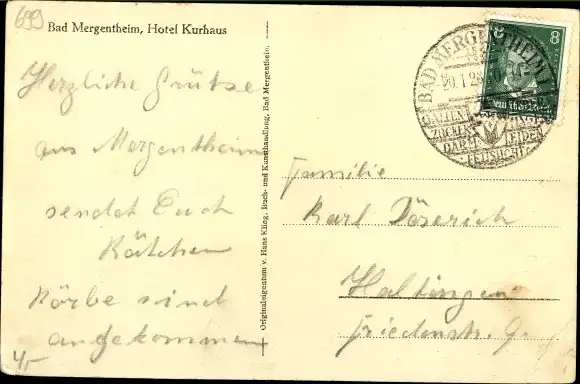 699
Bad Mergentheim, Hotel Kurhaus
Herzliche Grüße
aus Mergentheim
sendet Euch
Kätchen
Körbe sind
angekommen
4,-
Originaleigentum v. Hans Kling, Buch- und Kunsthandlung, Bad Mergentheim.
BAD MERGENTHEIM
20.1.2
GALLEN
ZUCKER
DARM LEIDEN
FETTSUCHT
8 8
Deutsches Reich
Familie
Karl Döserich
Haltingen
Friedenstr. 9.